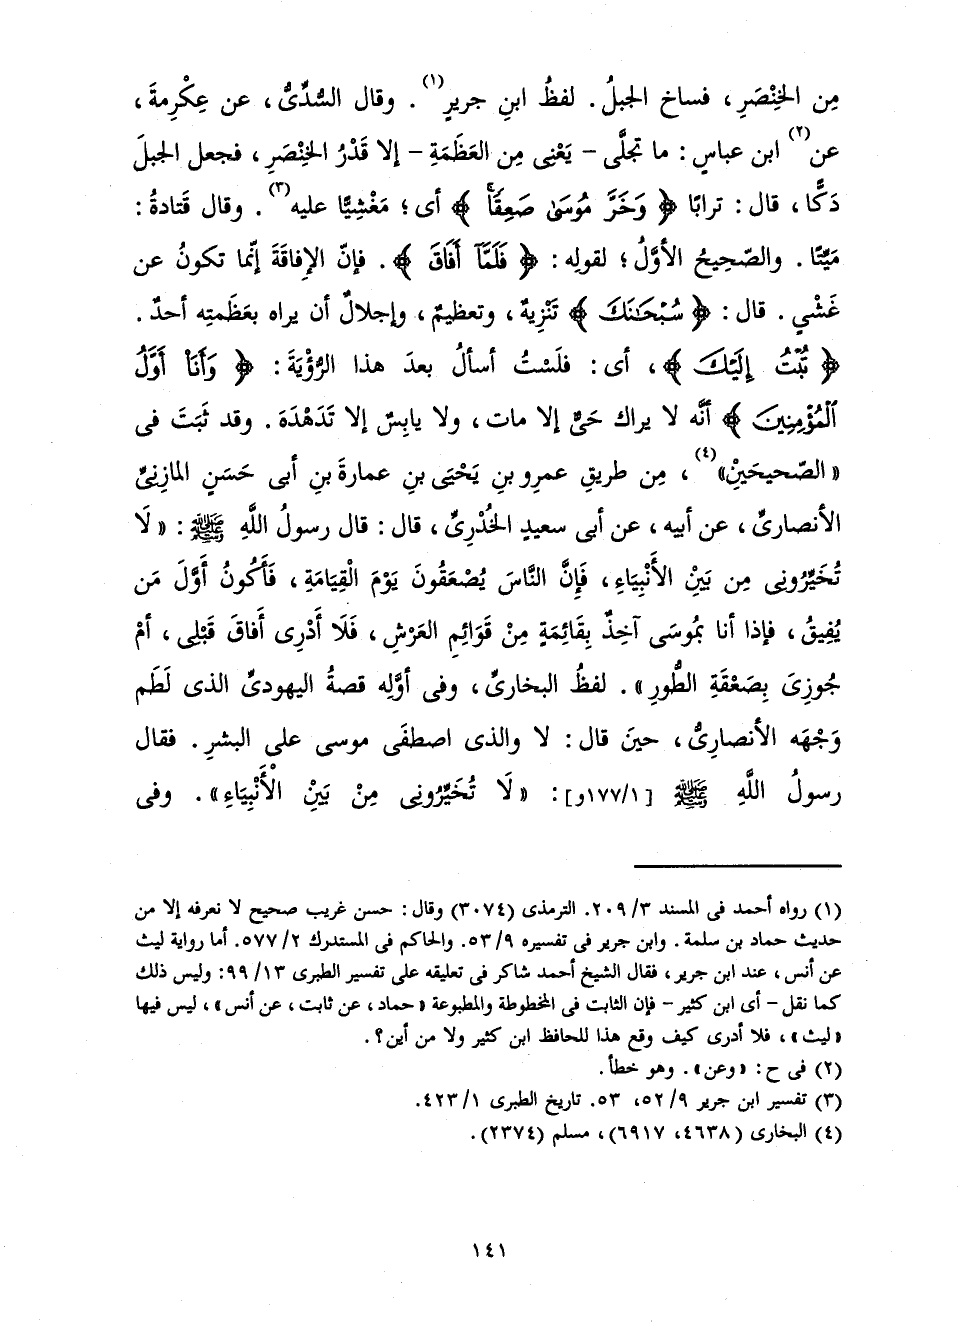 مِن الخِنْصَرِ، فساخ الجبلُ. لفظُ ابنِ جريرٍ(١). وقال السُّدِّىُّ، عن عِكْرِمةَ،
عن(٢) ابن عباسٍ: ما تجلَّى - يَعْنِى مِن العَظَمَةِ - إلا قَدْرُ الخِنْصَرِ، فجعل الجبلَ
دَكًّا، قال: ترابًا ﴿ وَخَرَّ مُوسَىٰ صَعِقًا ﴾ أى؛ مَغْشِيًّا عليه(٣). وقال قَتادةُ:
مَيِّتًا. والصّحِيحُ الأوَّلُ؛ لقولِه: ﴿ فَلَمَّآ أَفَاقَ ﴾. فإنّ الإفاقَةَ إنّما تكونُ عن
غَشْىٍ. قال: ﴿ سُبْحَـٰنَكَ ﴾ تَنْزِيهٌ، وتعظيمٌ، وإجلالٌ أن يراه بعَظَمتِه أحدٌ.
﴿ تُبْتُ إِلَيْكَ ﴾، أى: فلَسْتُ أسألُ بعدَ هذا الرُّؤْيَةَ: ﴿ وَأَنَا۠ أَوَّلُ
ٱلْمُؤْمِنِينَ ﴾ أنَّه لا يراك حَىٌّ إلا مات، ولا يابِسٌ إلا تَدَهْدَهَ. وقد ثَبَتَ فى
«الصّحيحَيْنِ»(٤)، مِن طريقِ عمرِو بنِ يَحْيَى بنِ عمارةَ بنِ أبى حَسَنٍ المازِنىِّ
الأنصارىِّ، عن أبيه، عن أبى سعيدٍ الخُدْرِىِّ، قال: قال رسولُ اللَّهِ ﷺ: «لَا
تُخَيِّرُونِى مِن بَيْنِ الأَنْبِيَاءِ، فَإِنَّ النَّاسَ يُصْعَقُونَ يَوْمَ الْقِيَامَةِ، فَأَكُونُ أَوَّلَ مَن
يُفِيقُ، فإذا أنا بمُوسَى آخِذٌ بِقَائِمَةٍ مِنْ قَوَائِمِ العَرْشِ، فَلَا أَدْرِى أَفاقَ قَبْلِى، أمْ
جُوزِىَ بِصَعْقَةِ الطُّورِ». لفظُ البخارىِّ، وفى أوَّلِه قصةُ اليهودىِّ الذى لَطَم
وَجْهَه الأنصارِىُّ، حينَ قال: لا والذى اصطفَى موسى على البشرِ. فقال
رسولُ اللَّهِ ﷺ [١/١٧٧و]: «لَا تُخَيِّرُونِى مِنْ بَيْنِ الْأَنْبِيَاءِ». وفى
(١) رواه أحمد فى المسند ٢٠٩/٣. الترمذى (٣٠٧٤) وقال: حسن غريب صحيح لا نعرفه إلا من
حديث حماد بن سلمة. وابن جرير فى تفسيره ٥٣/٩. والحاكم فى المستدرك ٥٧٧/٢. أما رواية ليث
عن أنس، عند ابن جرير، فقال الشيخ أحمد شاكر فى تعليقه على تفسير الطبرى ٩٩/١٣: وليس ذلك
كما نقل - أى ابن كثير - فإن الثابت فى المخطوطة والمطبوعة «حماد، عن ثابت، عن أنس»، ليس فيها
«ليث»، فلا أدرى كيف وقع هذا للحافظ ابن كثير ولا من أين؟.
(٢) فى ح: «وعن». وهو خطأ.
(٣) تفسير ابن جرير ٥٢/٩، ٥٣. تاريخ الطبرى ٤٢٣/١.
(٤) البخارى (٤٦٣٨، ٦٩١٧)، مسلم (٢٣٧٤).
١٤١